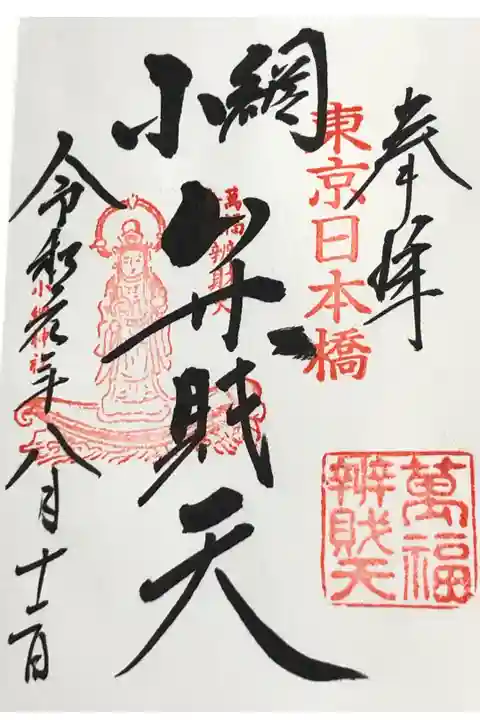 奉拝
東京日本橋
萬福
辨財天
小網
弁財天
萬福辨財天
小網神社
令和元年八月十二日